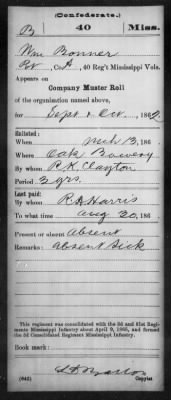 (Confederate.)
B 40 Miss.
Wm Bonner
Pvt, Co. A, 40 Reg't Mississippi Vols.
Appears on
Company Muster Roll
of the organization named above,
for Sept & Oct, 1862
Enlisted:
When Mch 13, 186
Where Oak Bowery
By whom R. K. Clayton
Period 3 yrs.
Last paid:
By whom R. A. Harris
To what time Aug 20, 186
Present or absent Absent
Remarks: Absent Sick
This regiment was consolidated with the 3d and 31st Regiments Mississippi Infantry about April 9, 1865, and formed
the 3d Consolidated Regiment Mississippi Infantry.
Book mark:
(642) Copyist